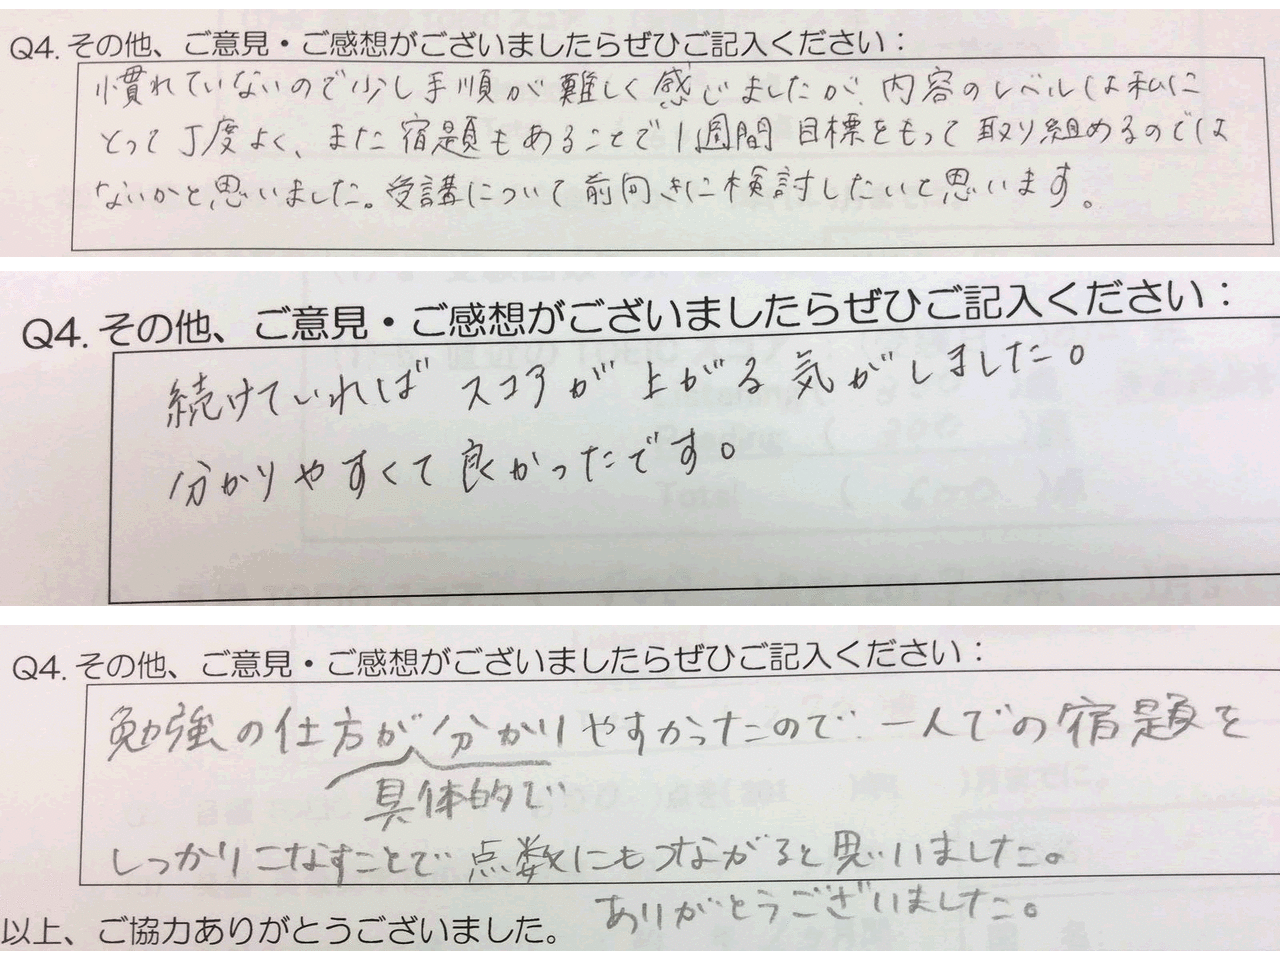 Q4. その他、ご意見・ご感想がございましたらぜひご記入ください：
慣れていないので少し手順が難しく感じましたが、内容のレベルは私に
とって丁度よく、また宿題もあることで1週間目標をもって取り組めるのでは
ないかと思いました。受講について前向きに検討したいと思います。
Q4. その他、ご意見・ご感想がございましたらぜひご記入ください：
続けていればスコアが上がる気がしました。
分かりやすくて良かったです。
Q4. その他、ご意見・ご感想がございましたらぜひご記入ください：
勉強の仕方が分かりやすかったので、一人での宿題を
具体的で
しっかりこなすことで点数にもつながると思いました。
ありがとうございました。
以上、ご協力ありがとうございました。